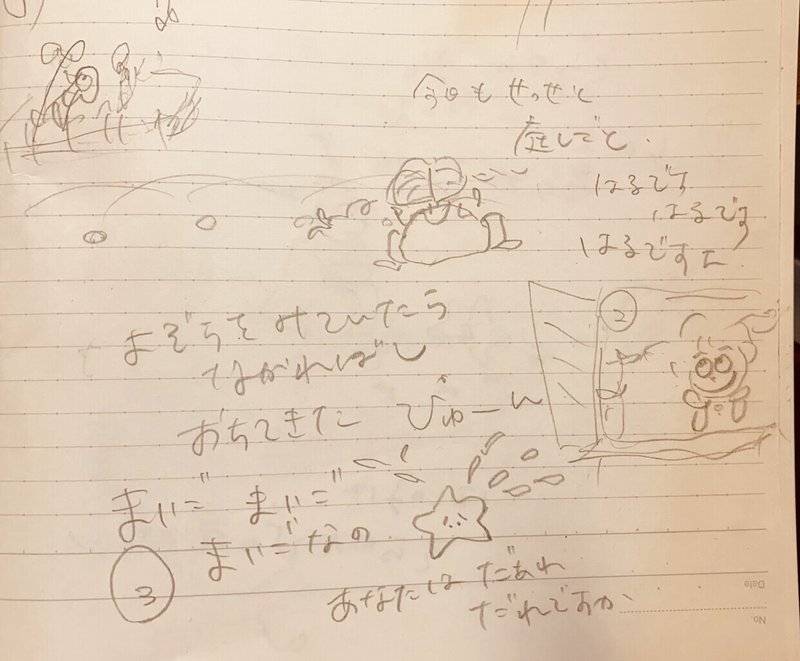 今日もせっせと
庭しごと.
はるです
はるです
はるですよ
②
よぞらをみていたら
ながれぼし
おちてきた ぴゅーん
まいご まいご
まいごなの
③
あなたはだあれ
だれですか
Date
No.